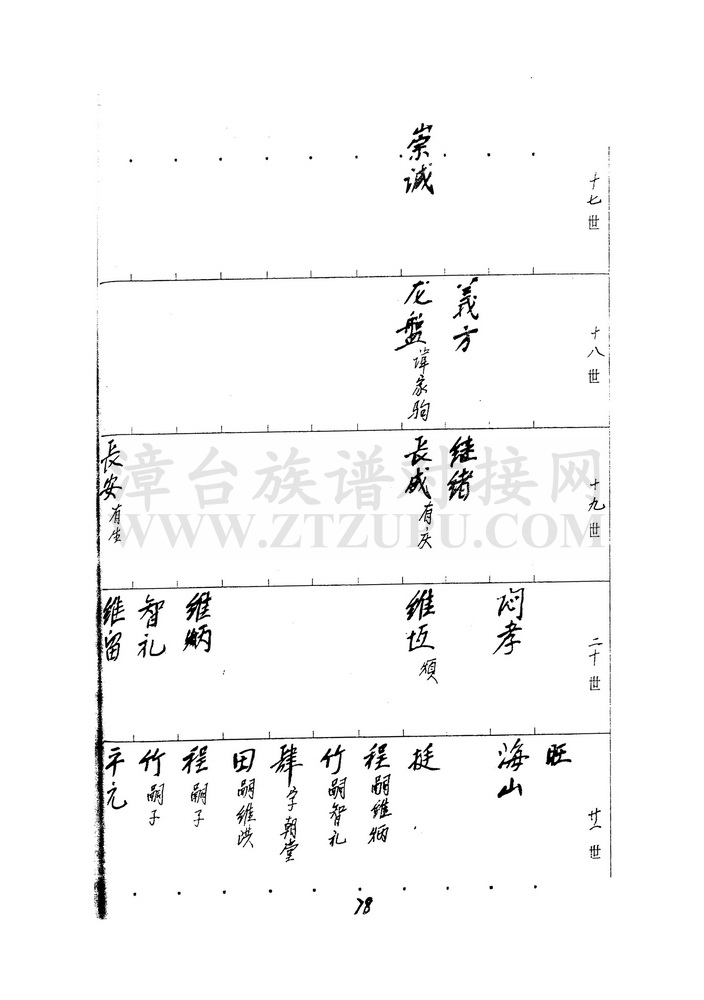 十七世
崇诚
十八世
義方
龙盤 諱家驹
十九世
继绪
長成 有庆
長安 有生
二十世
闷孝
维恆 須
维炳
智礼
维留
廿一世
旺
海山
挺
程 嗣维炳
竹 嗣智礼
肆 字朝堂
田 嗣维洪
程 嗣子
竹 嗣子
千元
78
漳台族谱对接网
WWW.ZTZUPU.COM